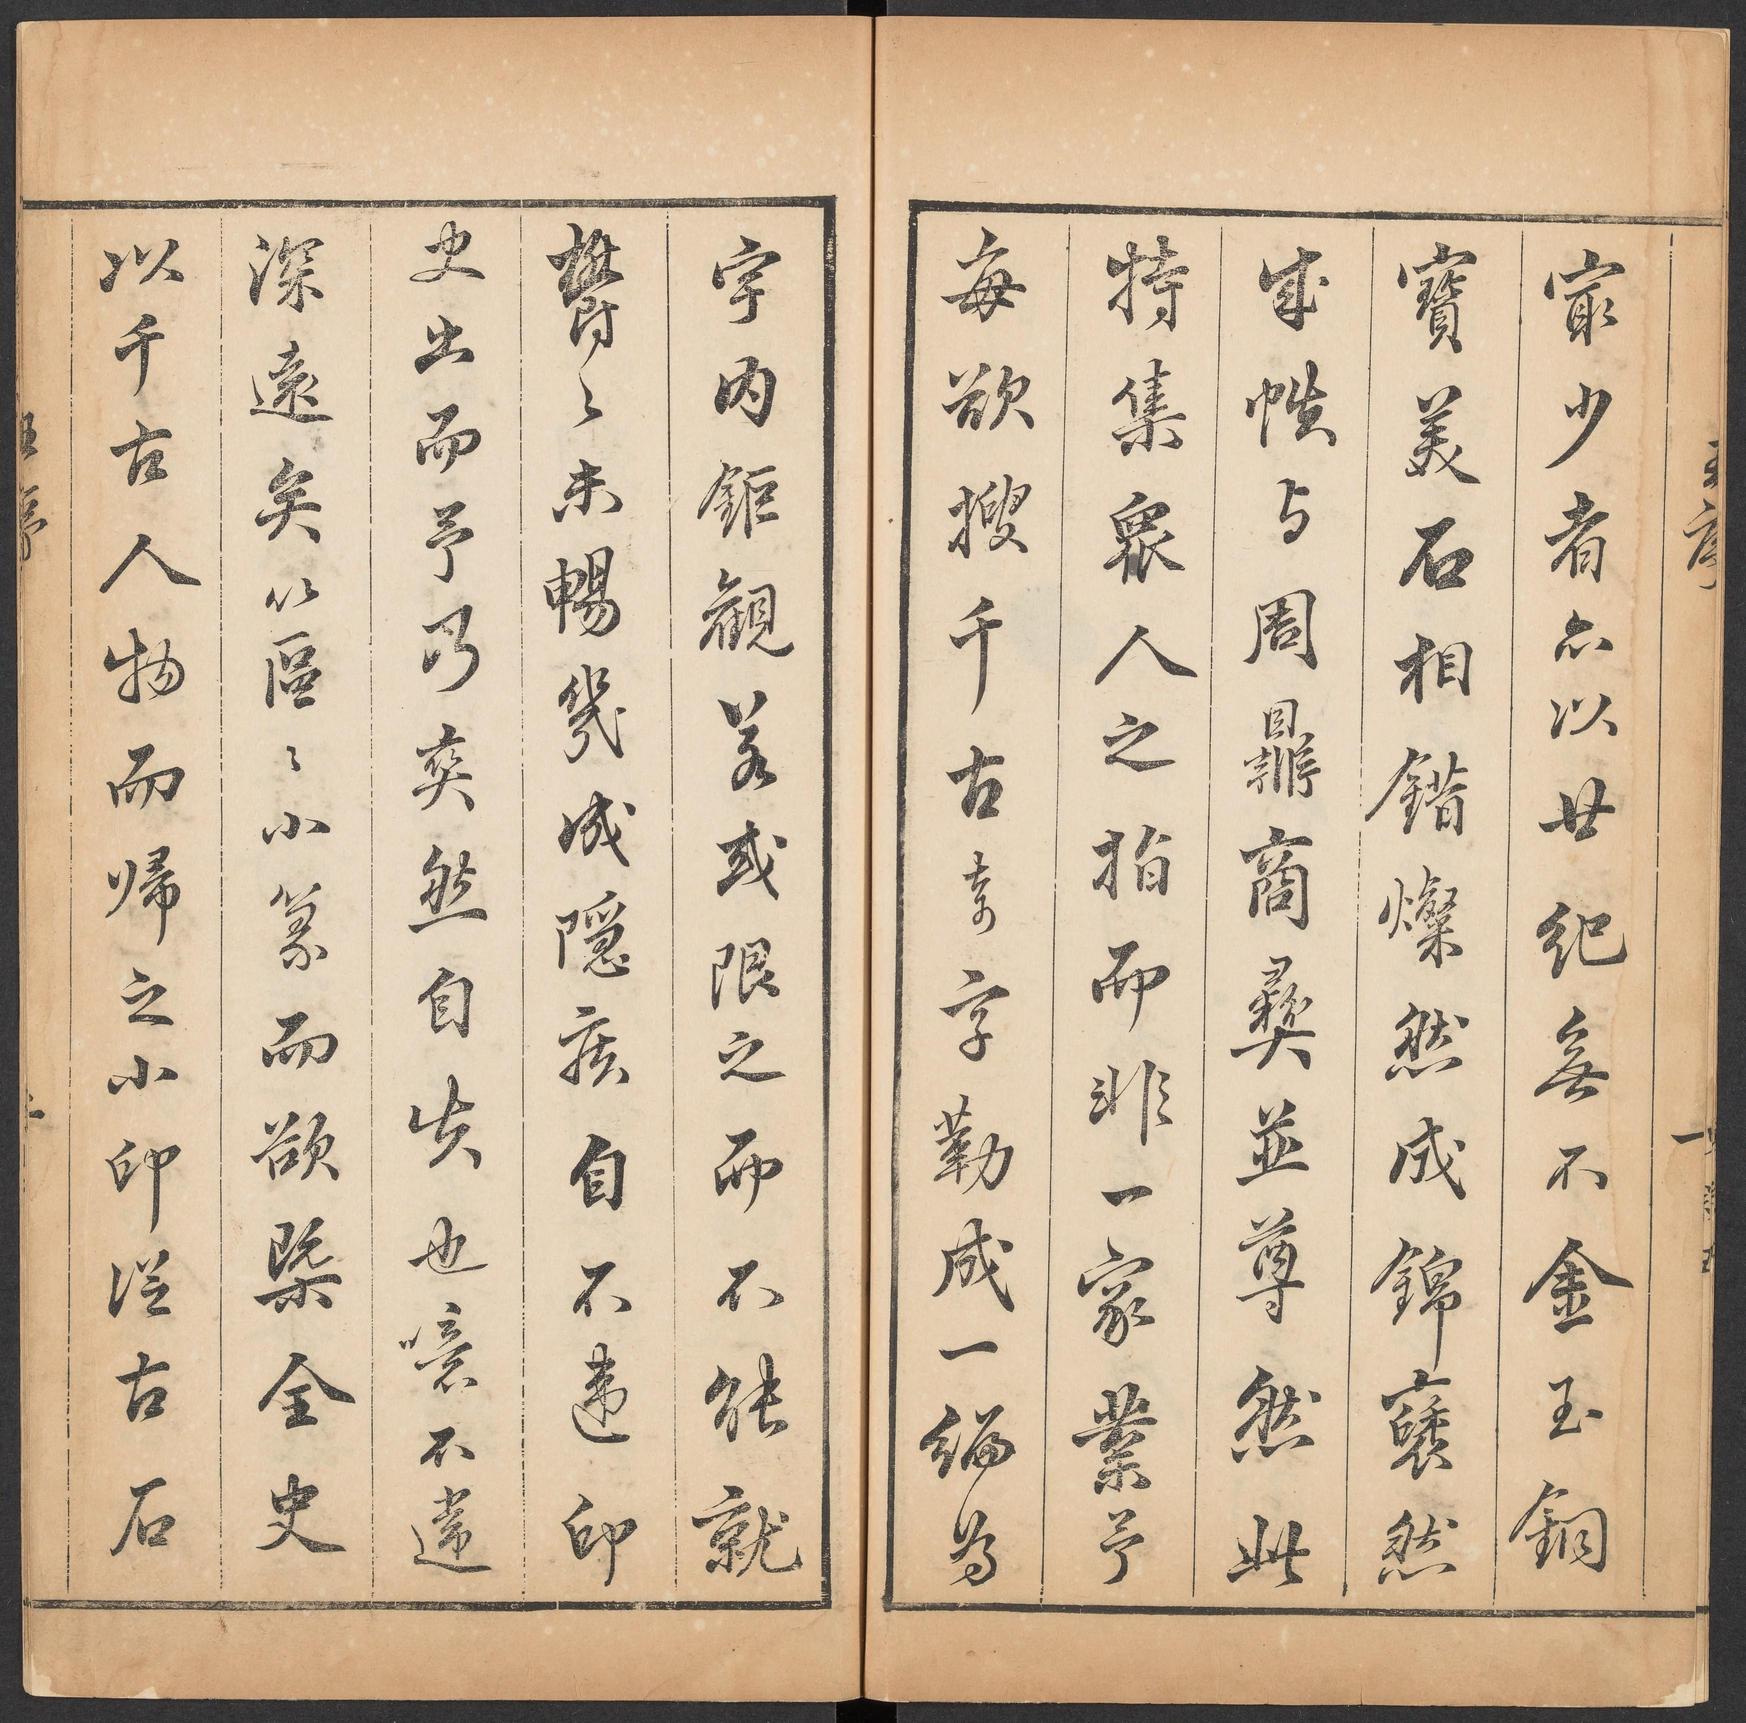 㝡少者亦以廿紀無不金玉銅
寶美石相錯燦然成錦褎然
成帙与周鼎商彝並尊然此
特集衆人之指而非一家業予
每欲搜千古奇字勒成一編為
宇内鉅觀羙或限之而不能就
欝〻未暢幾成隱疾自不違印
史出而予乃爽然自失也噫不違
深遠矣以區〻小篆而欲槩全史
以千古人物而歸之小印從古石